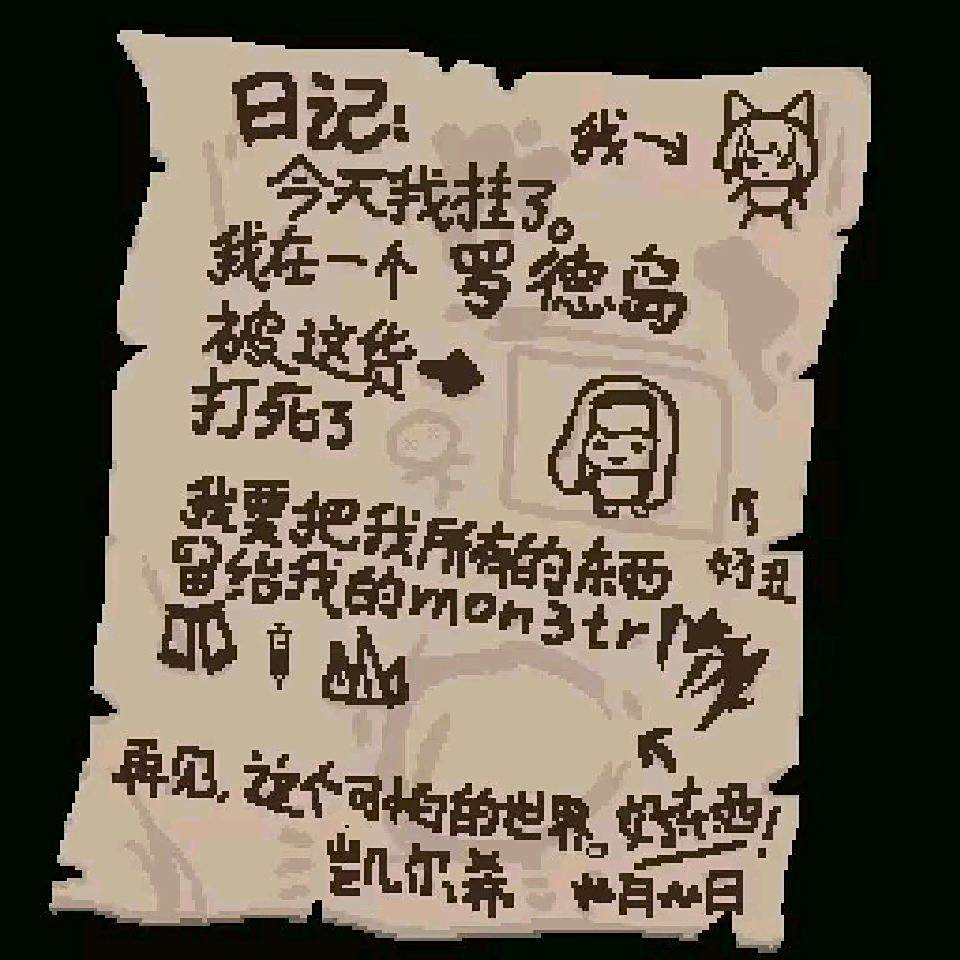 日记:
我→
今天我挂了。
我在一个 罗德岛
被这货
打死了
我要把我所有的东西
好丑
留给我的mon3tr
再见,这个可怕的世界。
好东西!
凯尔希